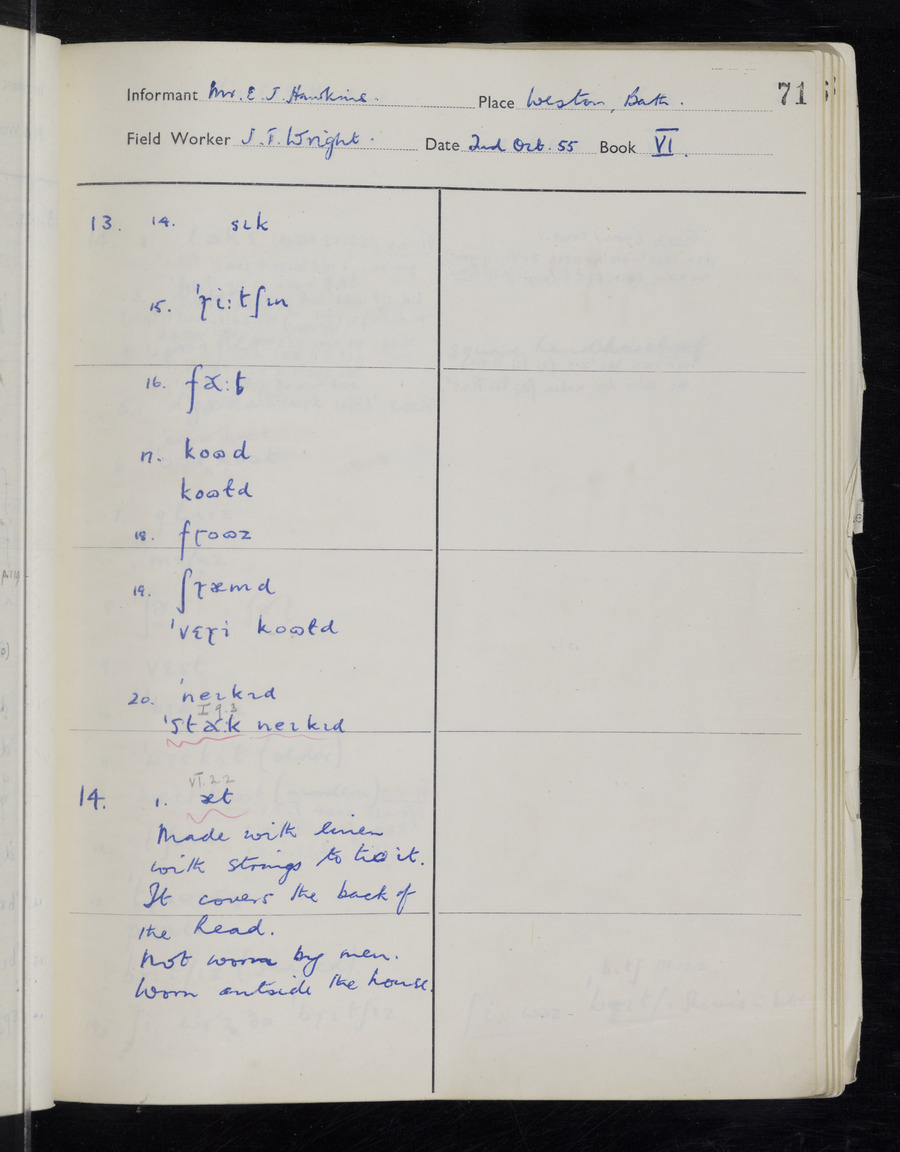 Informant Mr. E. J. Hawkins. Place Weston, Bath. 71
Field Worker J. T. Wright. Date 2nd Oct. 55 Book VI.
13. 14. sɪk
15. ˈɽiːtʃɪn
16.
17. koɷd
koɷɫd
18. fɽoɷz
19. ʃɽæmd
ˈvɛɽi koɷɫd
20. ˈneɪkɪd
I 9.3
ˈstaːk neɪkɪd
VI.22
14. 1. æt
Made with linen
with strings to tie it.
It covers the back of
the head.
Not worn by men.
Worn outside the house.